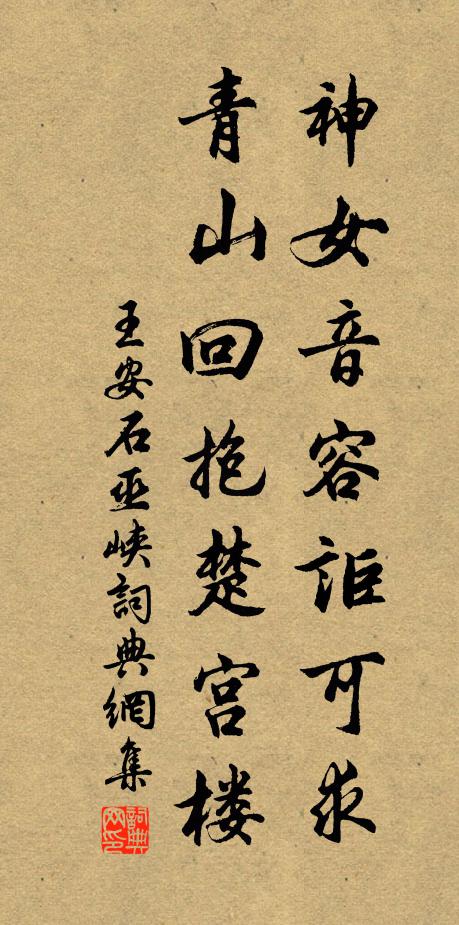 神女音容詎可求
青山回抱楚宫楼
王安石巫峡詞典網集
詞典網印